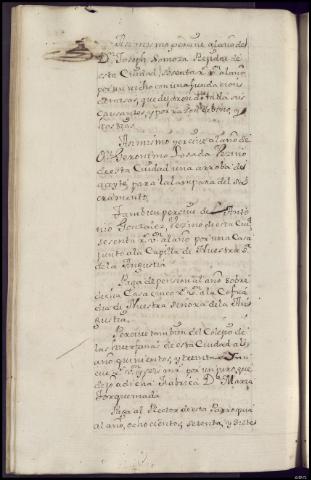 Asimismo percive al año de
Dn. Joseph Somoza Rexidor de
esta Ciudad, sesenta rs. vn. al año
por un nicho con una fundacion
de misas, que dejaron dotada sus
causantes, y por razon de
Asimismo percive al año de
Dn. Geronimo Losada Vezino
de esta Ciudad una arroba de
azeyte para la lampara del sa
cramento.
Tambien percive de Anto
nio Gonzalez, vezino de esta Ciud.
sesenta rs. vn. al año por una Casa
junto a la Capilla de Nuestra Sª.
de la Angustia
Paga de pension al año sobre
dicha Casa cinco rs. vn. a la Cofra
dia de Nuestra señora de la Ang
ustia.
Percive tambien del Colegio de
las huerfanas de esta Ciudad al
año quinientos, y treinta
rs. vn. y por un juro, que
dejo a dicha fabrica Dª. Maria
Torquemada
Paga al Rector de esta Parroquia
al año, ochocientos, setenta, y siete